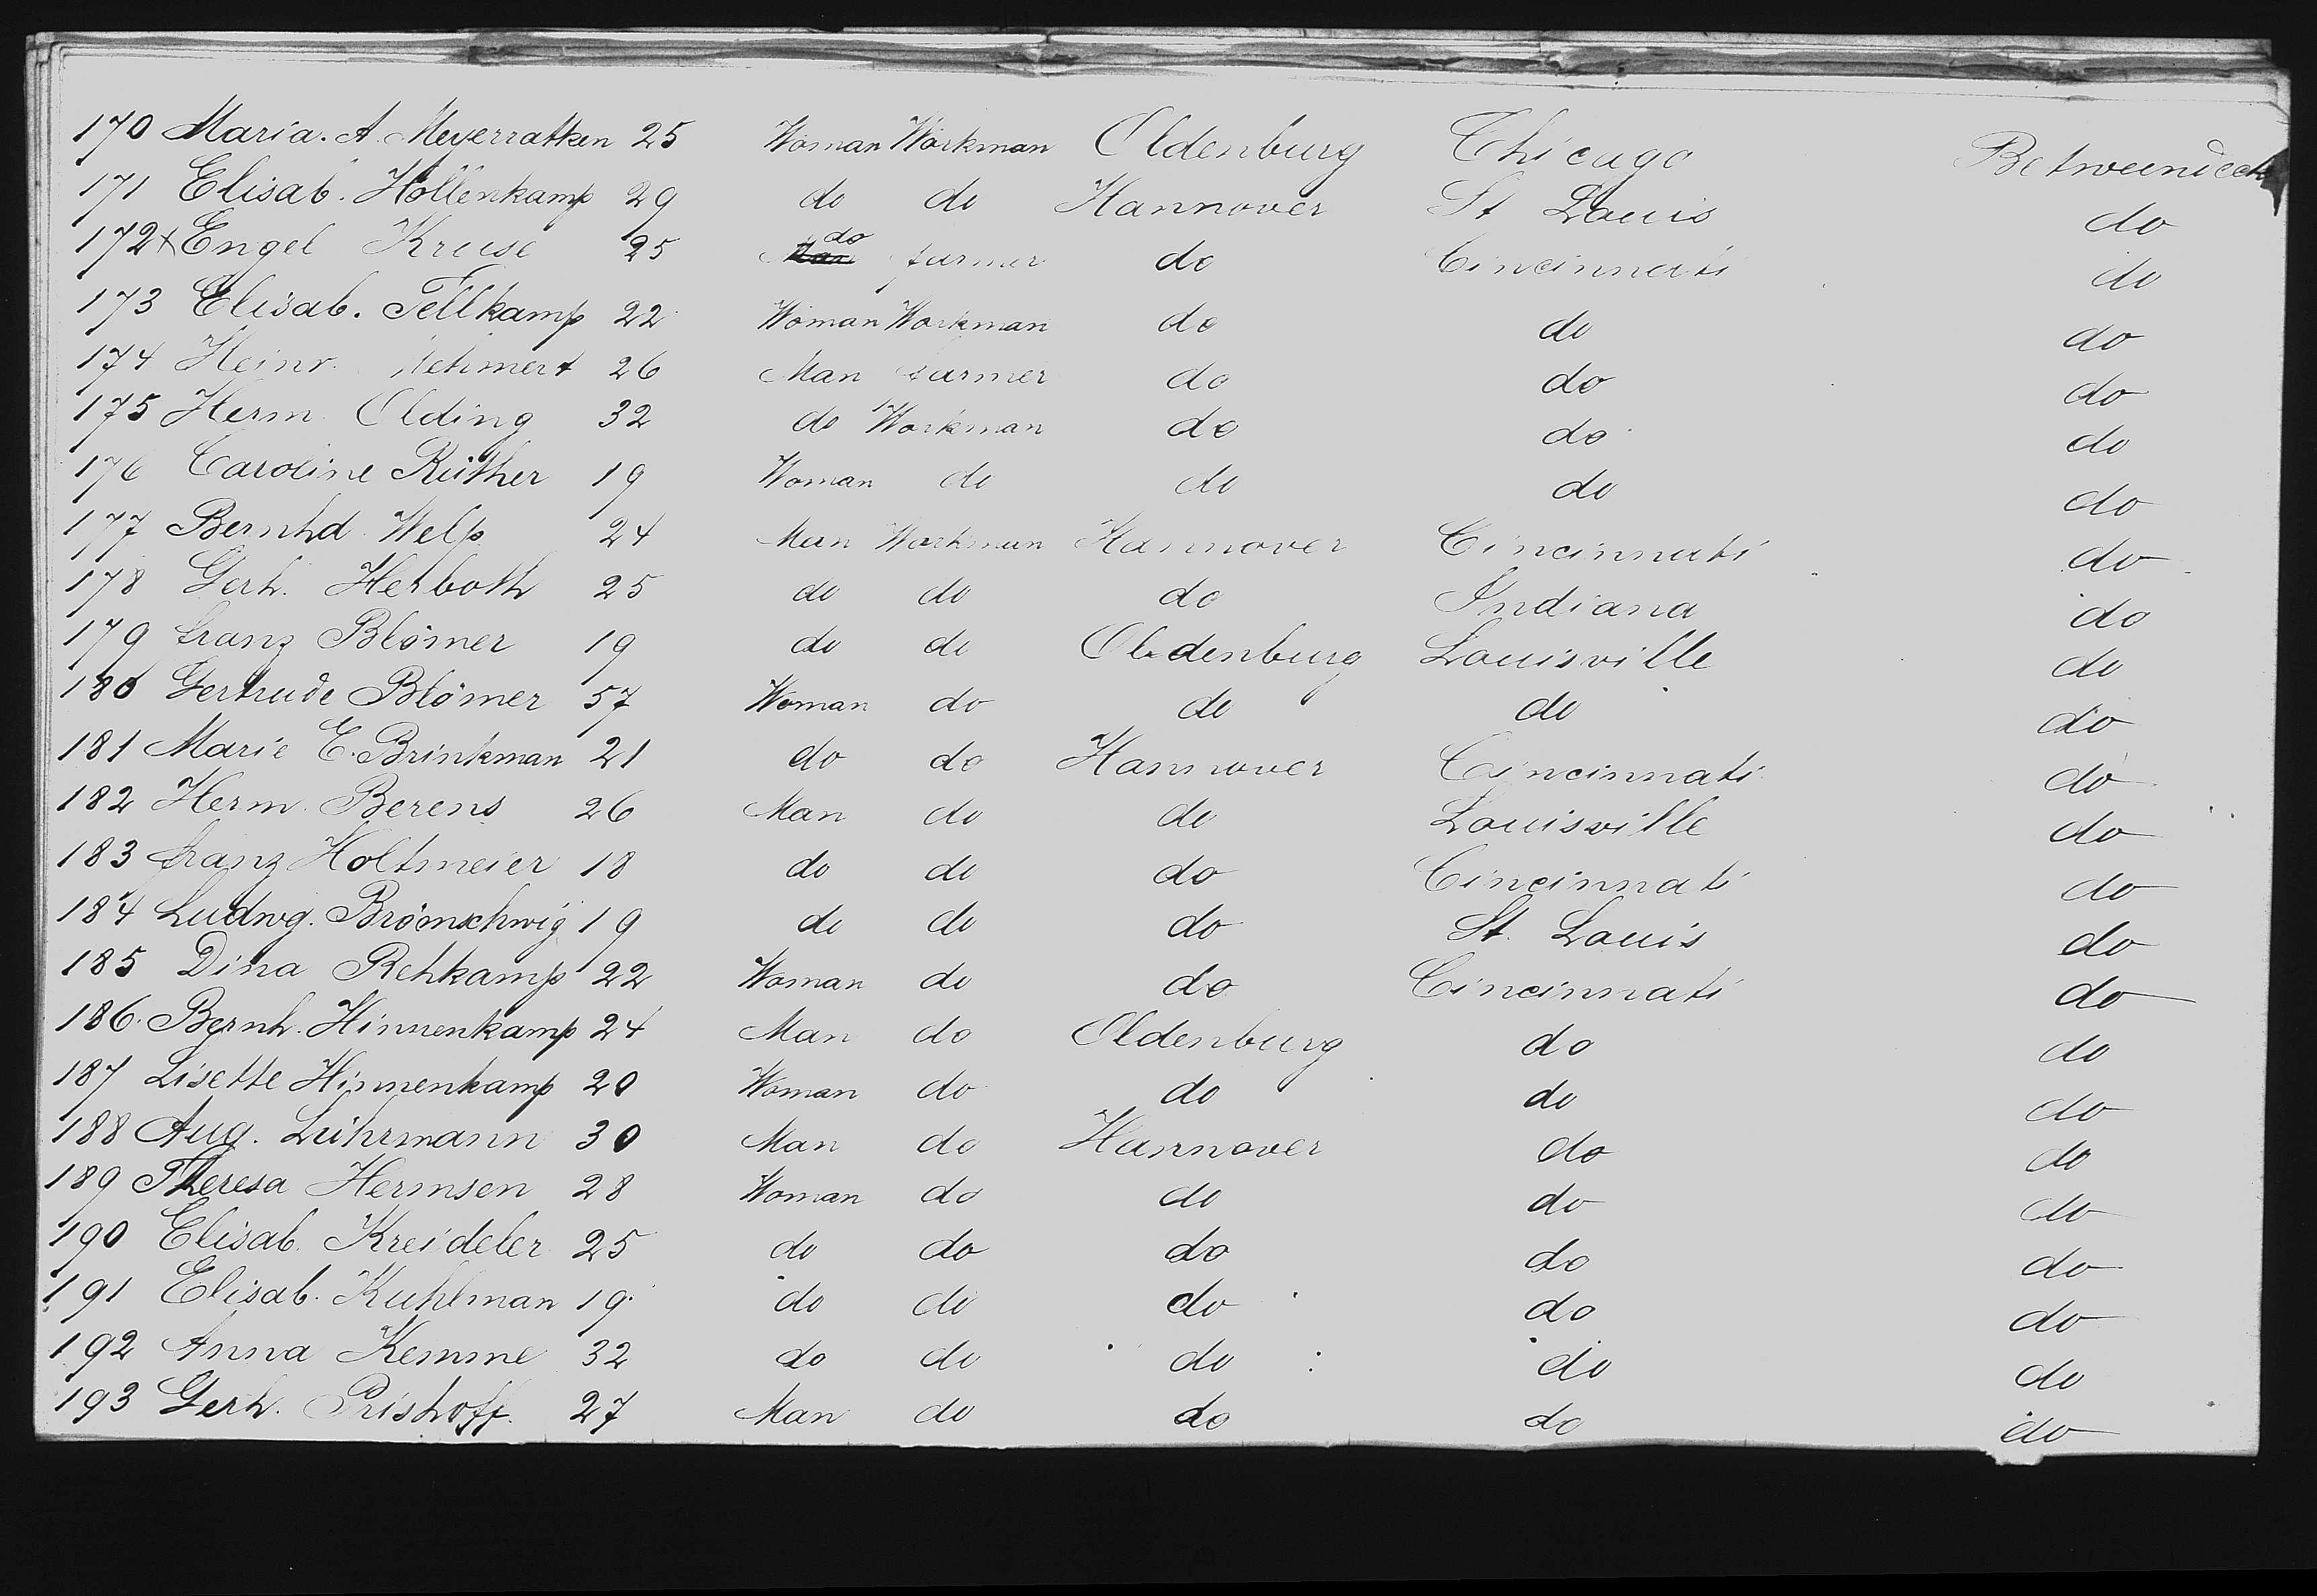 170 Maria. A. Meyerratken 25 Woman Workman Oldenburg Chicago Betweendeck
171 Elisab. Hollenkamp 29 do do Hannover St Louis do
172 x Engel Kruse 25 do farmer do Cincinnati do
173 Elisab. Fellkamp 22 Woman Workman do do do
174 Heinr. 26 Man farmer do do do
175 Herm. Olding 32 do Workman do do do
176 Caroline Rüther 19 Woman do do do do
177 Bernhd. Welp 24 Man Workman Hannover Cincinnati do
178 Gerh. Herboth 25 do do do Indiana do
179 franz Blömer 19 do do Oldenburg Louisville do
180 Gertrude Blömer 57 Woman do do do do
181 Marie E. Brinkman 21 do do Hannover Cincinnati do
182 Herm. Berens 26 Man do do Louisville do
183 franz Holtmeier 18 do do do Cincinnati do
184 Ludwg. Brömschwig 19 do do do St. Louis do
185 Dina Rehkamp 22 Woman do do Cincinnati do
186. Bernh. Hinnenkamp 24 Man do Oldenburg do do
187 Lisette Hinnenkamp 20 Woman do do do do
188 Aug. Lührmann 30 Man do Hannover do do
189 Theresa Hermsen 28 Woman do do do do
190 Elisab. Kreideler 25 do do do do do
191 Elisab. Kuhlman 19 do do do do do
192 Anna Kemme 32 do do do do do
193 Gerh. Prishoff. 27 Man do do do do